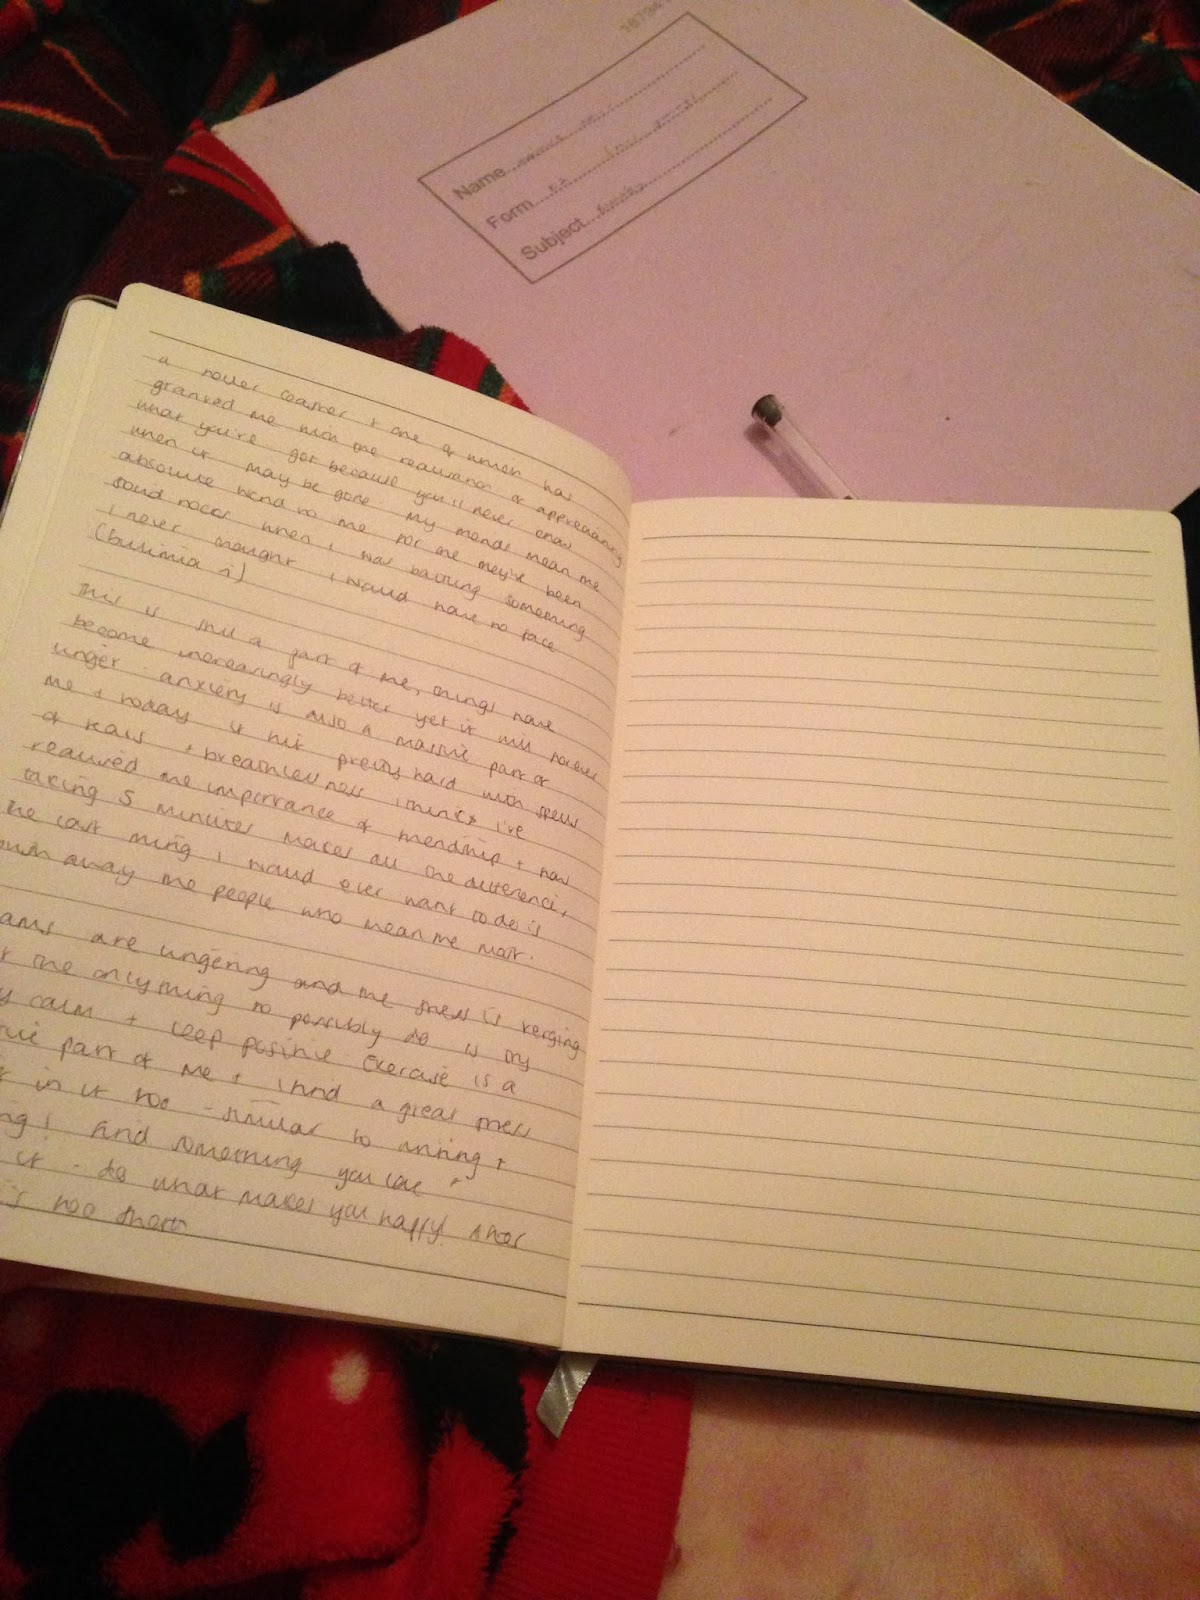 1879
Name
Form
Subject
a roller coaster + one of which has
granted me with the realisation of appreciating
what you've got because you'll never know
when it may be gone. My friends mean the
absolute world to me for me they've been
solid rocks when I was battling something
I never thought I would have to face
(bulimia :()
This is still a part of me, things have
become increasingly better yet it will forever
linger. anxiety is also a massive part of
me + today it hit pretty hard with spells
of tears + breathlessness. I think I've
realised the importance of friendship + how
taking 5 minutes makes all the difference,
the last thing I would ever want to do is
push away the people who mean the most.
ams are lingering and the stress is verging
the only thing to possibly do is try
calm + keep positive. Exercise is a
part of me + I find a great
in it too - similar to writing +
ng! find something you love
it - do what makes you happy! After
is too short